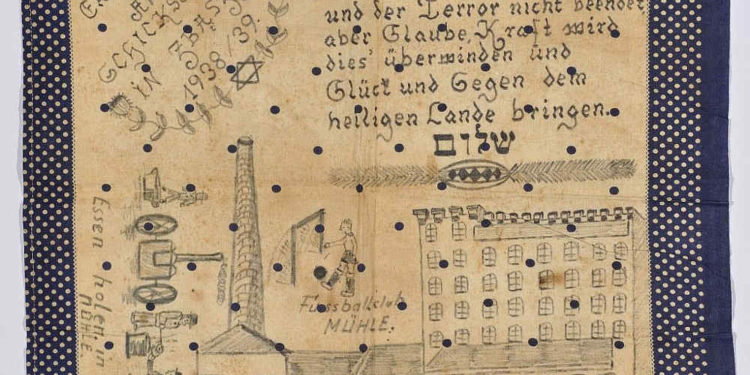 SCHICKS
IN
1938/39.
und der Terror nicht beendet,
aber Glaube, Kraft wird
dies' überwinden und
Glück und Segen dem
heiligen Lande bringen.
שלום
Essen holen in
MÜHLE
Fussballclub
MÜHLE.